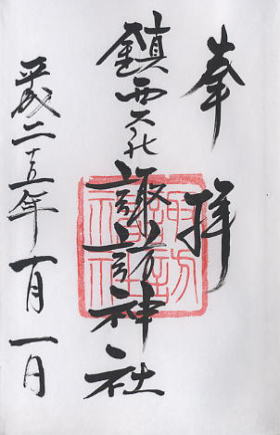 奉拝
鎮西大社諏訪神社
平成二十五年一月一日
諏訪
神社